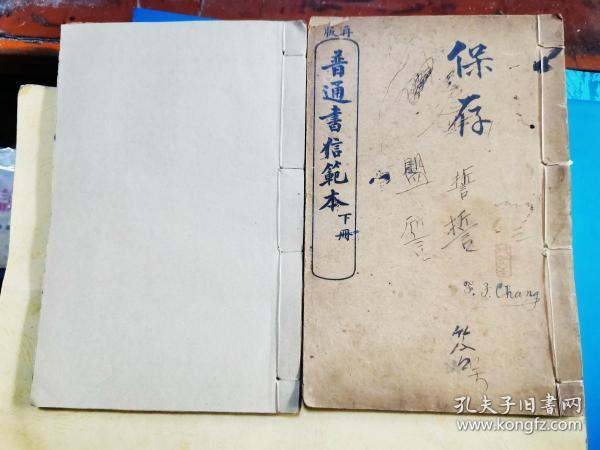 再版
普通書信範本
下冊
保存
誓誓
盟誓
S. J. Chang
孔夫子旧书网
www.kongfz.com